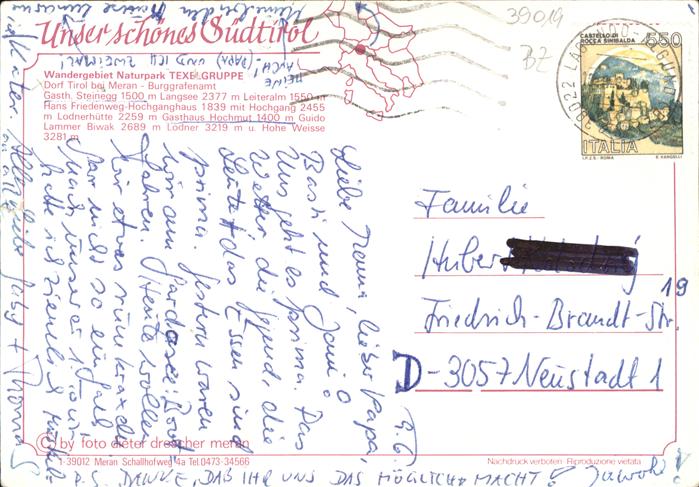 Unser schönes Südtirol
Wandergebiet Naturpark TEXELGRUPPE
Dorf Tirol bei Meran - Burggrafenamt
Gasth. Steinegg 1500 m Langsee 2377 m Leiteralm 1550 m
Hans Friedenweg-Hochganghaus 1839 mit Hochgang 2455
m Lodnerhütte 2259 m Gasthaus Hochmut 1400 m Guido
Lammer Biwak 2689 m Lodner 3219 m u. Hohe Weisse
3281 m
39019
BZ
CASTELLO DI
ROCCA SINIBALDA
550
ITALIA
I.P.Z.S. - ROMA
9.6.
Liebe Mama, lieber Papa,
Basti und Jani!
Uns geht es prima. Das
Wetter, die Gegend, die
Leute + das Essen sind
prima. Gestern waren
wir am Gardasee: Boot
fahren. Heute wollen
wir etwas rumkraxeln.
Gar nicht so einfach
nach unserer Tour
hatte ich ziemlich Muskel-
kater. Alles Liebe Gaby + Thomas
(PAPA UND ICH ZWEIMAL!)
AUCH!
MEINE
Familie
Hubert
Friedrich-Brandt-Str. 19
D-3057 Neustadt 1
© by foto dieter drescher meran
I-39012 Meran Schallhofweg 4a Tel.0473-34566
Nachdruck verboten - Riproduzione vietata
P.S. DANKE, DAß IHR UNS DAS MÖGLICH MACHT! Jawohl!